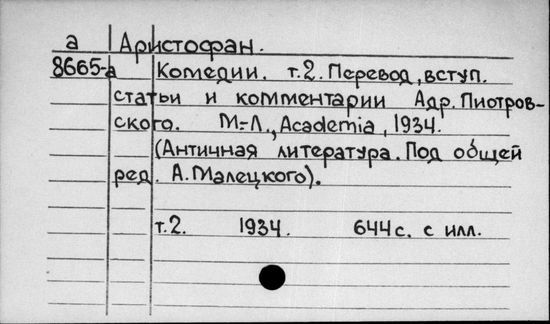 а Аристофан.
8665-а Комедии. т.2. Перевод, вступ.
статьи и комментарии Адр. Пиотров-
ского. М.-Л., Academia, 1934.
(Античная литература. Под общей
ред. А. Малецкого).
т.2. 1934. 644 с. с илл.